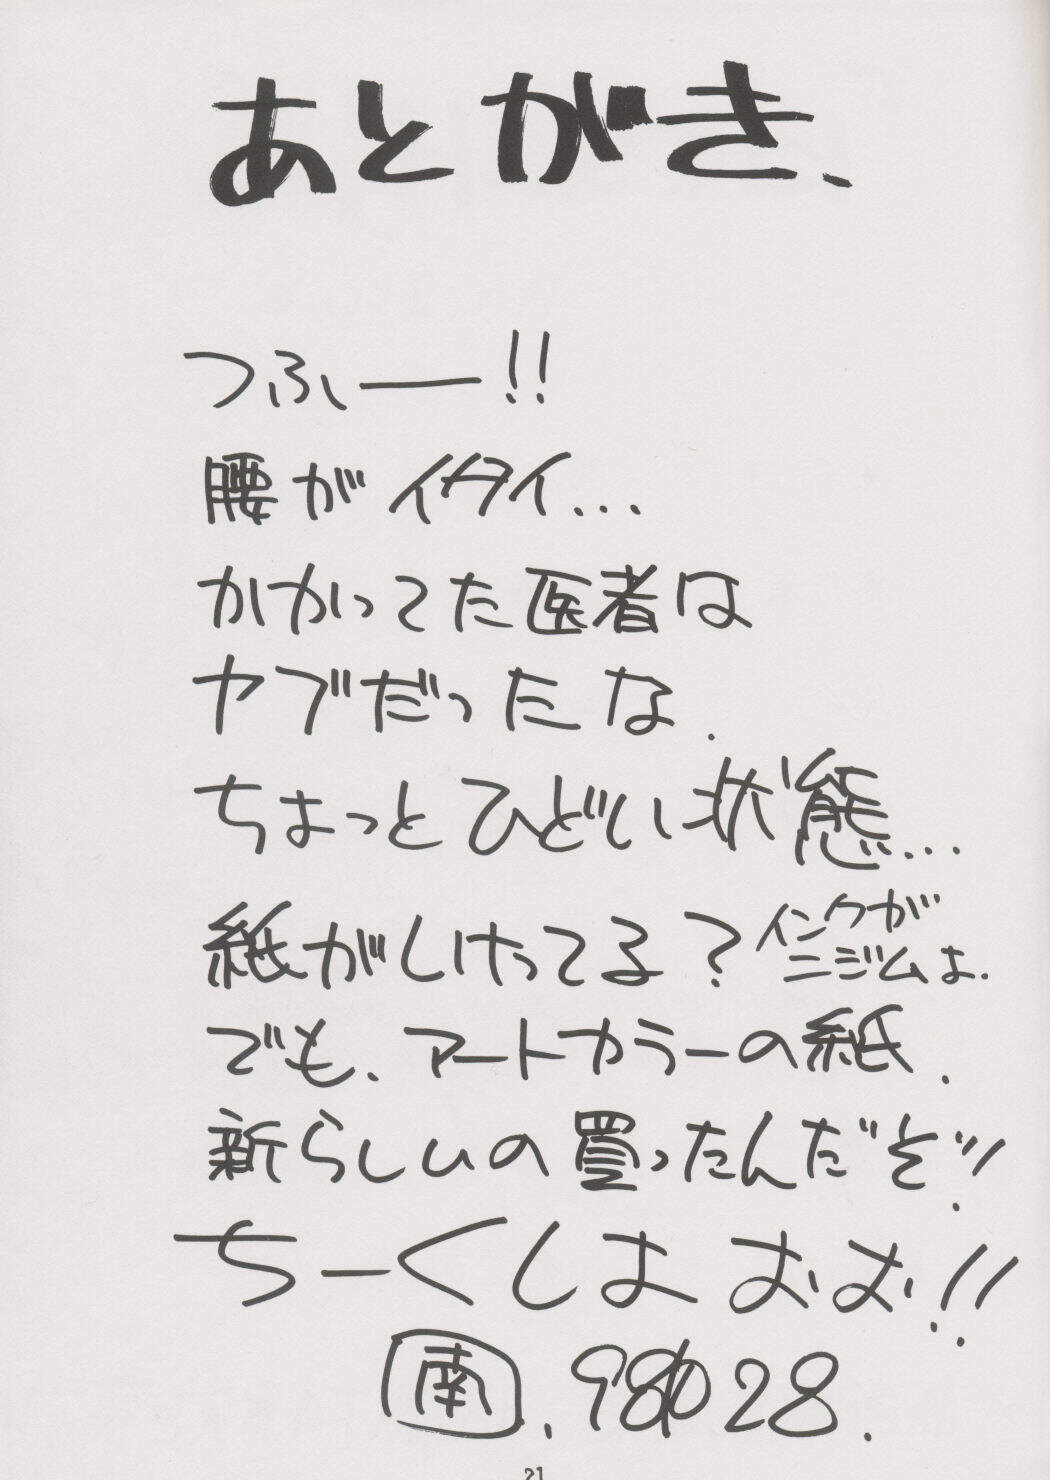 あとがき、
つふー!!
腰がイタイ...
かかってた医者は
ヤブだったな.
ちょっとひどい状態...
紙がしけってる?インクが
ニジムよ.
でも、アートカラーの紙.
新らしいの買ったんだぞッ!
ちーくしょおお!!
南.98 28.
21